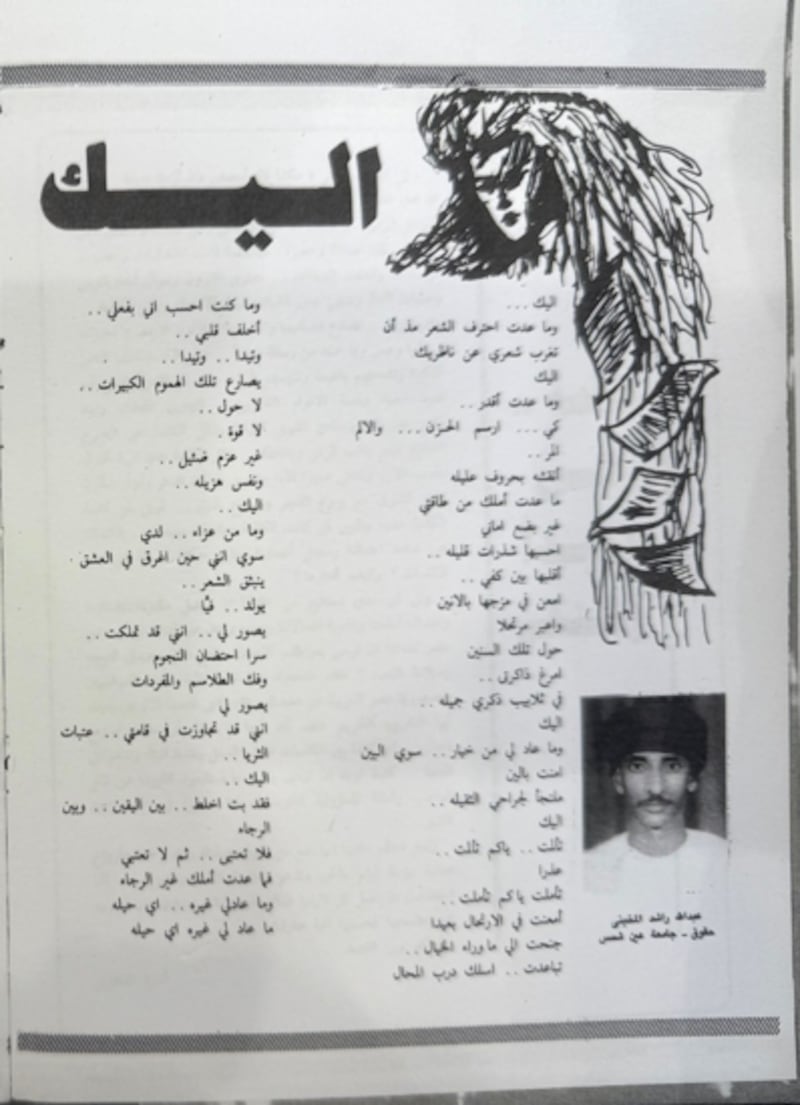 اليك
اليك ...
وما عدت احترف الشعر مذ أن
تغرب شعري عن ناظريك
اليك
وما عدت أقدر ..
كي ... ارسم الحزن ... والالم
المر ..
أنقشه بحروف عليله
ما عدت أملك من طاقتي
غير بضع اماني
احسبها شذرات قليله ..
أقلبها بين كفي ..
امعن في مزجها بالانين
واعبر مرتحلا
حول تلك السنين
امرغ ذاكرتي ..
في تلابيب ذكري جميله ..
اليك
وما عاد لي من خيار .. سوي البين
امنت بالين
ملتجأ لجراحي الثقيله ..
اليك
تألت .. ياكم تألت ..
عذرا
تأملت ياكم تأملت ..
أمعنت في الارتحال بعيدا
جنحت الي ماوراء الخيال ..
تباعدت .. اسلك درب المحال
وما كنت احسب اني بفعلي ..
أخلف قلبي ..
وئيدا .. وئيدا ..
يصارع تلك الهموم الكبيرات ..
لا حول ..
لا قوة .
غير عزم ضئيل ..
ونفس هزيله ..
اليك ..
وما من عزاء .. لدي
سوي انني حين اغرق في العشق .
ينبثق الشعر ..
يولد .. فيَّا
يصور لي .. انني قد تملكت ..
سرا احتضان النجوم
وفك الطلاسم والمفردات
يصور لي
انني قد تجاوزت في قامتي .. عتبات
الثريا ..
اليك ..
فقد بت اخلط .. بين اليقين .. وبين
الرجاء
فلا تعتبى .. ثم لا تعتبي
فما عدت أملك غير الرجاء
وما عادلي غيره .. اي حيله
ما عاد لي غيره اي حيله
عبدالله راشد
حقوق - جامعة عين شمس